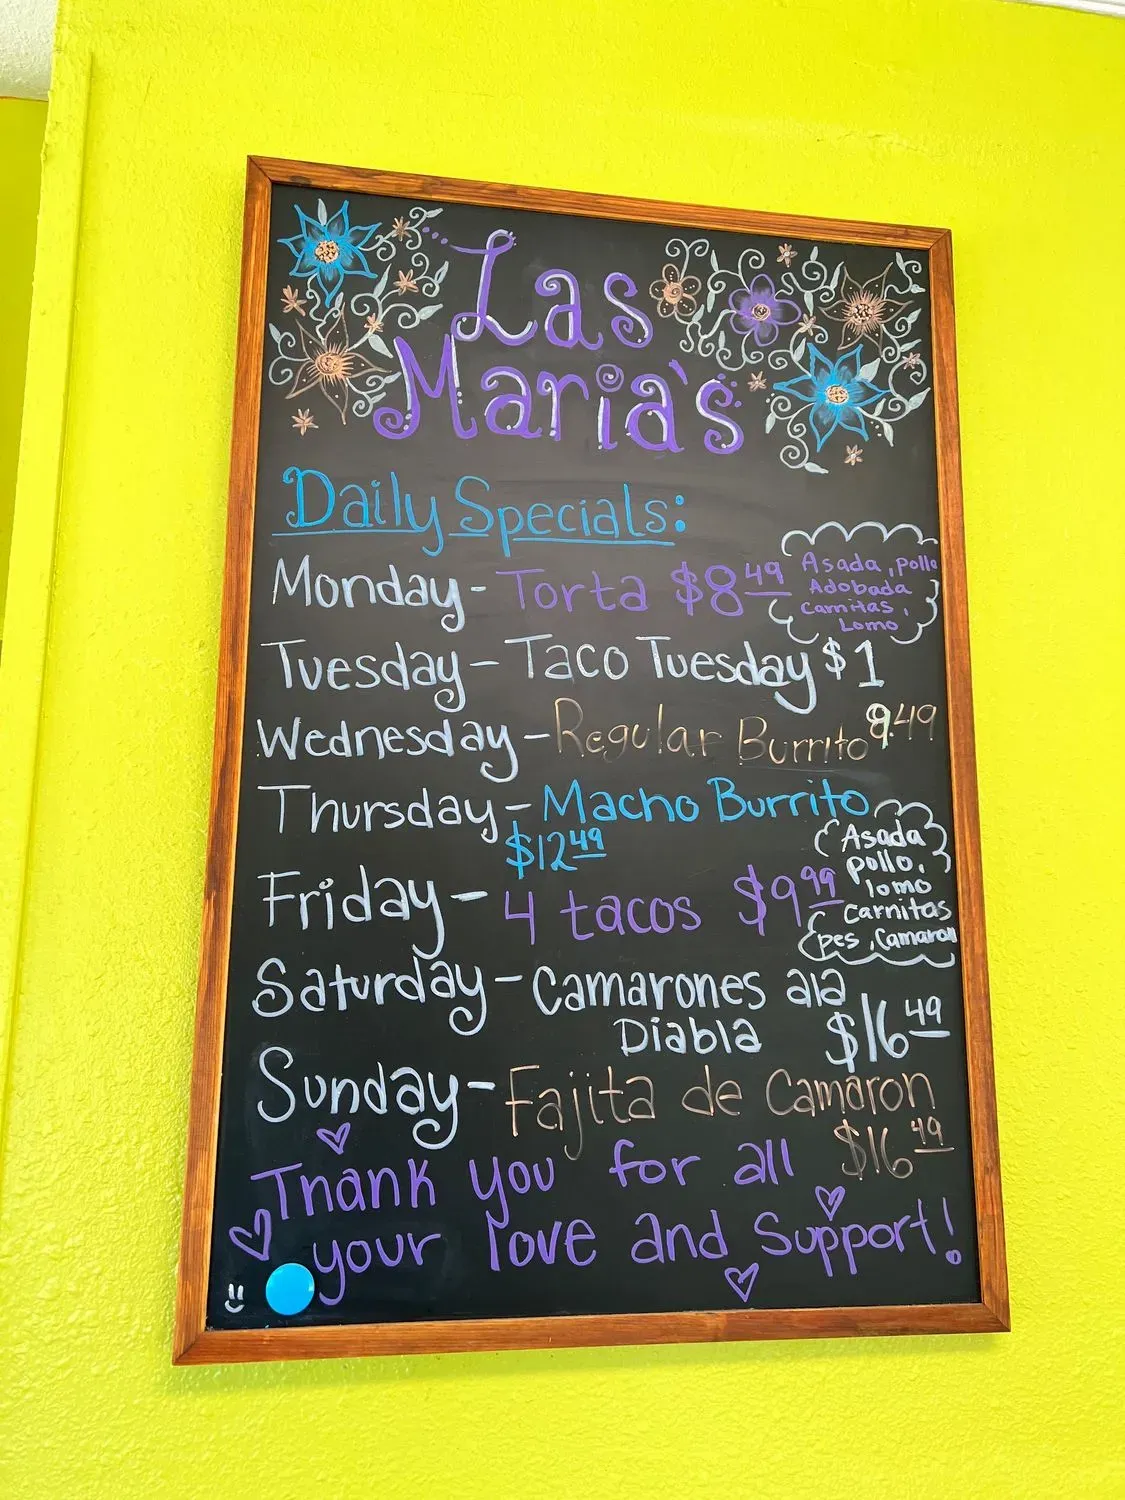 Las
Maria's
Daily Specials:
Monday - Torta $8.49
Asada, pollo
Adobada
Carnitas,
Lomo
Tuesday - Taco Tuesday $1
Wednesday - Regular Burrito 9.49
Thursday - Macho Burrito
$12.49
Friday - 4 tacos $9.99
Asada
pollo,
lomo
Carnitas
pes, Camaron
Saturday - Camarones ala
Diabla $16.49
Sunday - Fajita de Camaron
$16.49
Thank you for all
your love and Support!